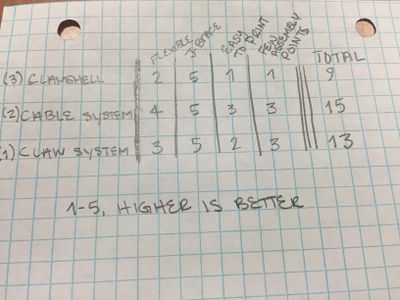 FLEXIBLE
EASY TO PRINT
FEW ASSEMBLY POINTS
TOTAL
(3) CLAMSHELL 2 5 1 1 9
(2) CABLE SYSTEM 4 5 3 3 15
(1) CLAW SYSTEM 3 5 2 3 13
1-5, HIGHER IS BETTER